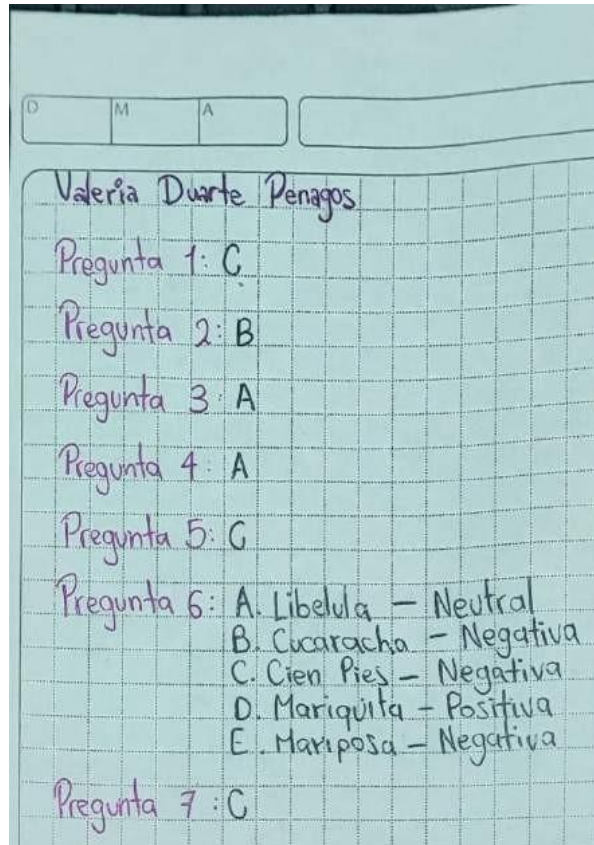 D M A
Valeria Duarte Penagos
Pregunta 1: C
Pregunta 2: B
Pregunta 3: A
Pregunta 4: A
Pregunta 5: C
Pregunta 6: A. Libelula – Neutral
B. Cucaracha – Negativa
C. Cien Pies – Negativa
D. Mariquita – Positiva
E. Mariposa – Negativa
Pregunta 7: C